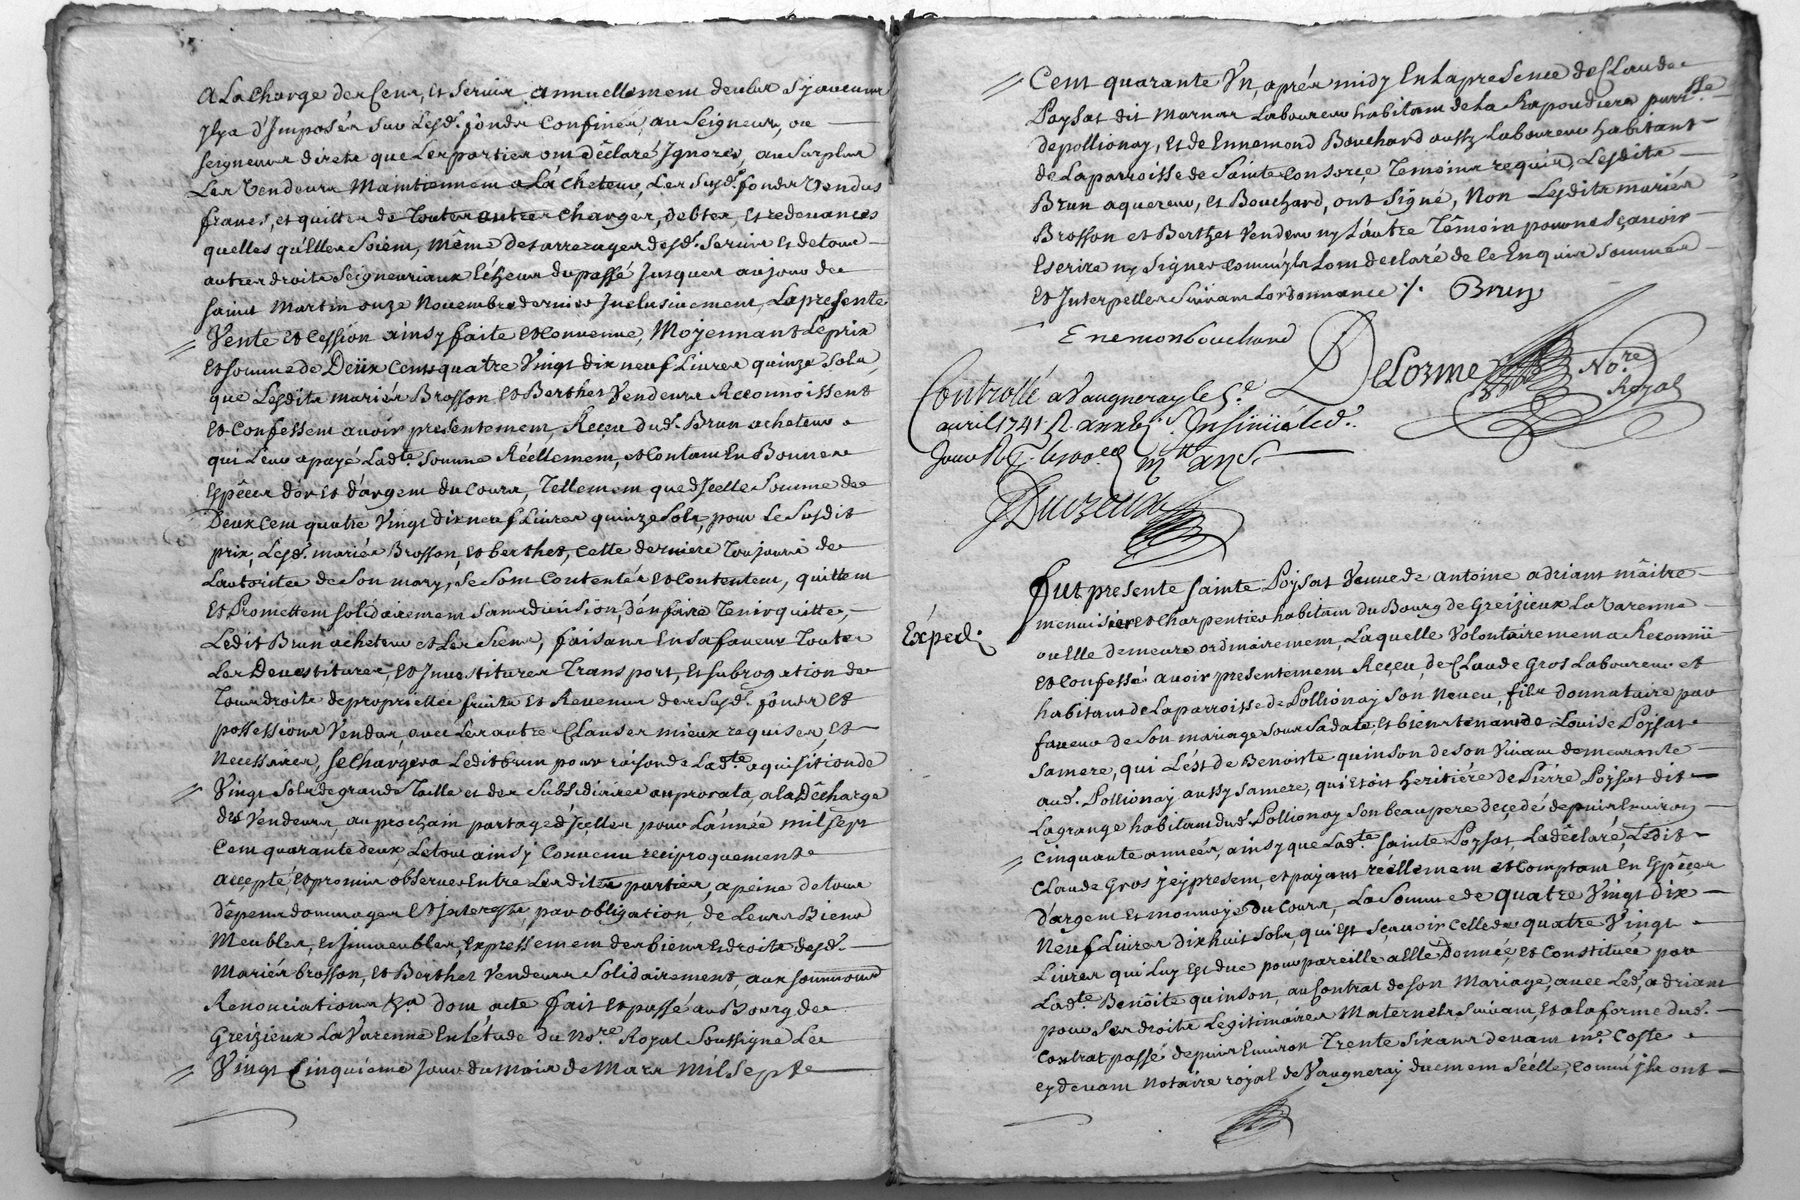 A La Charge des Cens, et Servis annuellement deubs sy aucuns
Jlya d'Imposés Sur Lesds. fonds Confinés, au Seigneur, ou
seigneurs directs que Les parties ont déclaré Ignorer, au Surplus
Les Vendeurs Maintiennent a L'acheteur, Les Susds. fonds Vendus
francs, et quittes de Toutes autres Charges, debtes, et redevances
quelles qu'Elles Soient, Même des arrerages desds. Servis et de tous
autres droits Seigneuriaux Echeus du passé Jusques au jour de
saint Martin onze Novembre dernier Inclusivement, La presente
Vente et Cession ainsy faite et Convenue, Moyennant Le prix
et somme de Deux Cents quatre Vingt dix neuf Livres quinze Sols,
que Lesdits mariés Brosson et Berthet Vendeurs Reconnoissent
et Confessent avoir presentement, Reçeu dud. Brun acheteur
qui Leur a payé Ladte. Somme Réellement, et Contant En Bonnes
Espêces d'or et d'argent du Cours, Tellement que d'Jcelle Somme de
Deux Cent quatre Vingt dix neuf Livres quinze Sols, pour Le Susdit
prix, Lesds. mariés Brosson, et berthet, Cette derniere Toujours de
L'autorité de Son mary, Se Sont Contentés et Contentent, quittent
et Promettent solidairement Sans division, d'en faire Tenir quitte,
Ledit Brun acheteur et Les Siens, faisans En Sa faveur Toutes
Les Devestitures, et Investitures Transport, et subrogation de
Tous droits de proprietée fruits et Revenus des Susds. fonds et
possessions Vendus, avec Les autres Clauses mieux requises, et
Necessaires, Se Chargera Ledit brun pour raison de Ladte. aquisition de
Vingt Sols de grande Taille et des Subsidiaires au prorata, a la Décharge
des Vendeurs, au prochain partage d'Jcelles pour L'année mil sept
Cent quarante deux, Le tout ainsy Convenu reciproquement
accepté, et promis observer Entre Lesdites parties, a peine de tous
dêpens dommages et Interests, par obligation de Leurs Biens
Meubles, et Jmmeubles, Expressement des biens et droits desds.
Mariés brosson, et Berthet Vendeurs Solidairement, aux soumissions
Renonciations &a. dont acte fait et passé au Bourg de
Greizieux La Varenne En L'étude du Nore. Royal Soussigné Le
Vingt Cinquiéme Jour du mois de Mars Mil Sept
Cent quarante Vn, aprés midy En La presence de Claude
Poysat dit Marnas Laboureur habitant de La Rapoudiere parrsse.
de pollionay, et de Ennemond Bouchard aussy Laboureur habitant
de La parroisse de Sainte Consorçe Temoins requis, Lesdits
Brun aquereur, et Bouchard, ont Signé, Non Lesdits mariés
Brosson et Berthet Vendeurs ny L'autre Têmoin pour ne Sçavoir
Escrire ny Signer Comm'jls L'ont declaré de Ce Enquis Sommés
et Interpellés Suivant L'ordonnance ./. Brun
Enemon bouchard
DeLorme Nore. Royal
Controllé a Vaugneray le 5e.
avril 1741 Insinué led.
Jour
Duvzeux
Expedi.
Fut presente Sainte Poysat Veuve de Antoine adriant mâitre
menuisier et Charpentier habitant du Bourg de Greizieux La Varenne
ou Elle demeure ordinairement, Laquelle Volontairement a Reconnû
et Confessé avoir presentement Reçeu, de Claude Gros Laboureur et
habitant de La parroisse de Pollionay Son Neveu, fils donnataire par
faveur de Son mariage Sous Sa date, et bien tenant de Louise Poysat
Sa mere, qui L'est de Benoiste quinson de Son Vivant demeurante
aud. Pollionay aussy Sa mere, qui Etoit heritiére de Piérre Poysat dit
Lagrange habitant dud. Pollionay Son beaupere deçedé depuis Environ
Cinquante années, ainsy que Ladte. Sainte Poysat La déclaré, Ledit
Claude Gros jcy present, et payant réellement et Comptant En Espêces
d'argent et monnoye du Cours, La Somme de quatre Vingt dix
Neuf Livres dix huit Sols, qui Est Sçavoir Celle de quatre Vingt
Livres qui Luy Est due pour pareille a Elle Donnée, et Constituée par
Ladte. Benoite quinson, au Contrat de Son Mariage, avec Led. adriant
pour Ses droits Legitimaires Maternels Suivant, et a la forme dud.
Contrat passé depuis Environ Trente Six ans devant me. Coste
cy devant Notaire royal de Vaugneray duement Scéllé, Comm'jls ont